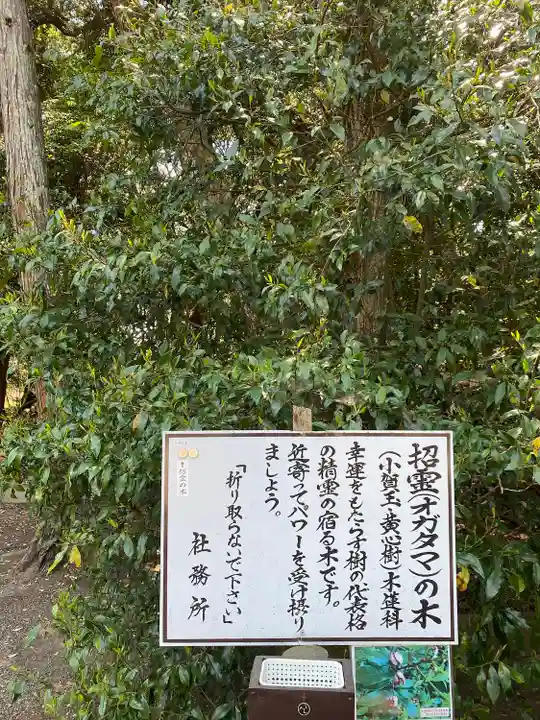 招霊(オガタマ)の木
(小賀玉・黄心樹)木蓮科
幸運をもたらす樹の代表格
の精霊の宿る木です。
近寄ってパワーを受け授り
ましょう。
「折り取らないで下さい」
社務所
招霊の木